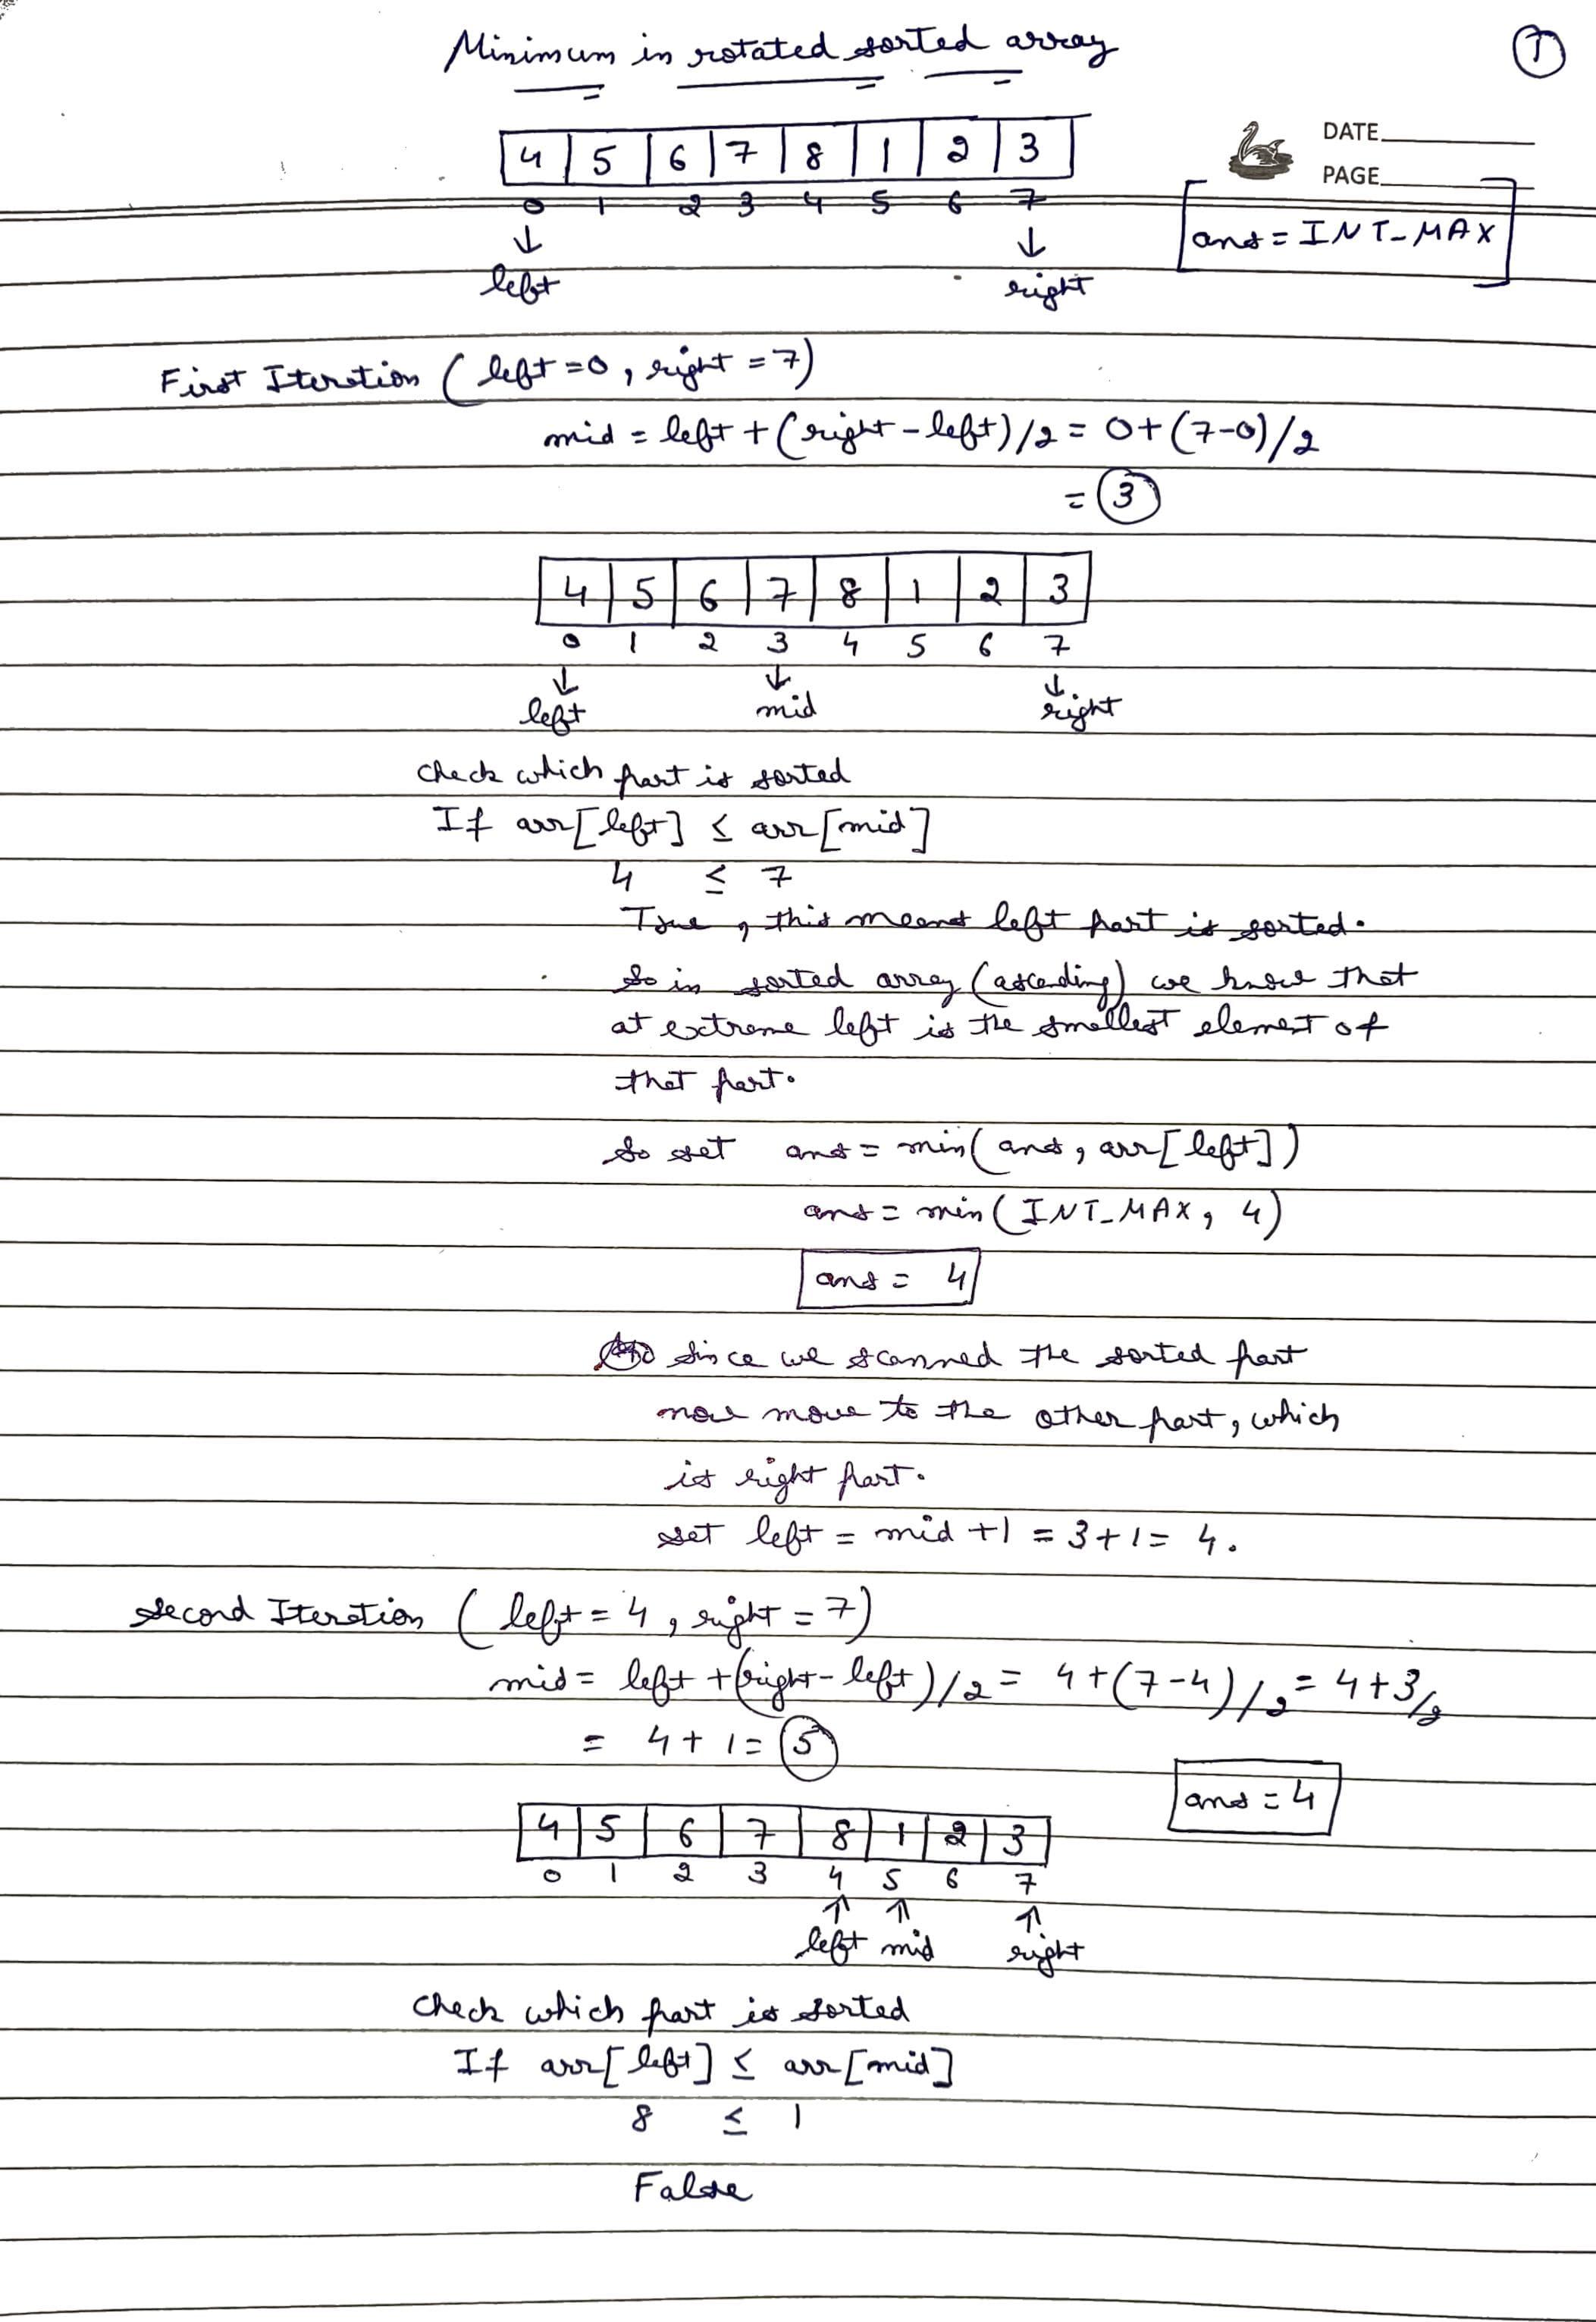 Minimum in rotated sorted array
1
DATE
PAGE
4 5 6 7 8 1 2 3
0 1 2 3 4 5 6 7
ans = INT_MAX
left right
First Iteration (left = 0, right = 7)
mid = left + (right - left) / 2 = 0 + (7-0) / 2
= 3
4 5 6 7 8 1 2 3
0 1 2 3 4 5 6 7
left mid right
Check which part is sorted
If arr[left] ≤ arr[mid]
4 ≤ 7
True, this means left part is sorted.
So in sorted array (ascending) we know that
at extreme left is the smallest element of
that part.
So set ans = min(ans, arr[left])
ans = min(INT_MAX, 4)
ans = 4
Since we scanned the sorted part
now move to the other part, which
is right part.
set left = mid + 1 = 3 + 1 = 4.
Second Iteration (left = 4, right = 7)
mid = left + (right - left) / 2 = 4 + (7-4) / 2 = 4 + 3/2
= 4 + 1 = 5
ans = 4
4 5 6 7 8 1 2 3
0 1 2 3 4 5 6 7
left mid right
Check which part is sorted
If arr[left] ≤ arr[mid]
8 ≤ 1
False